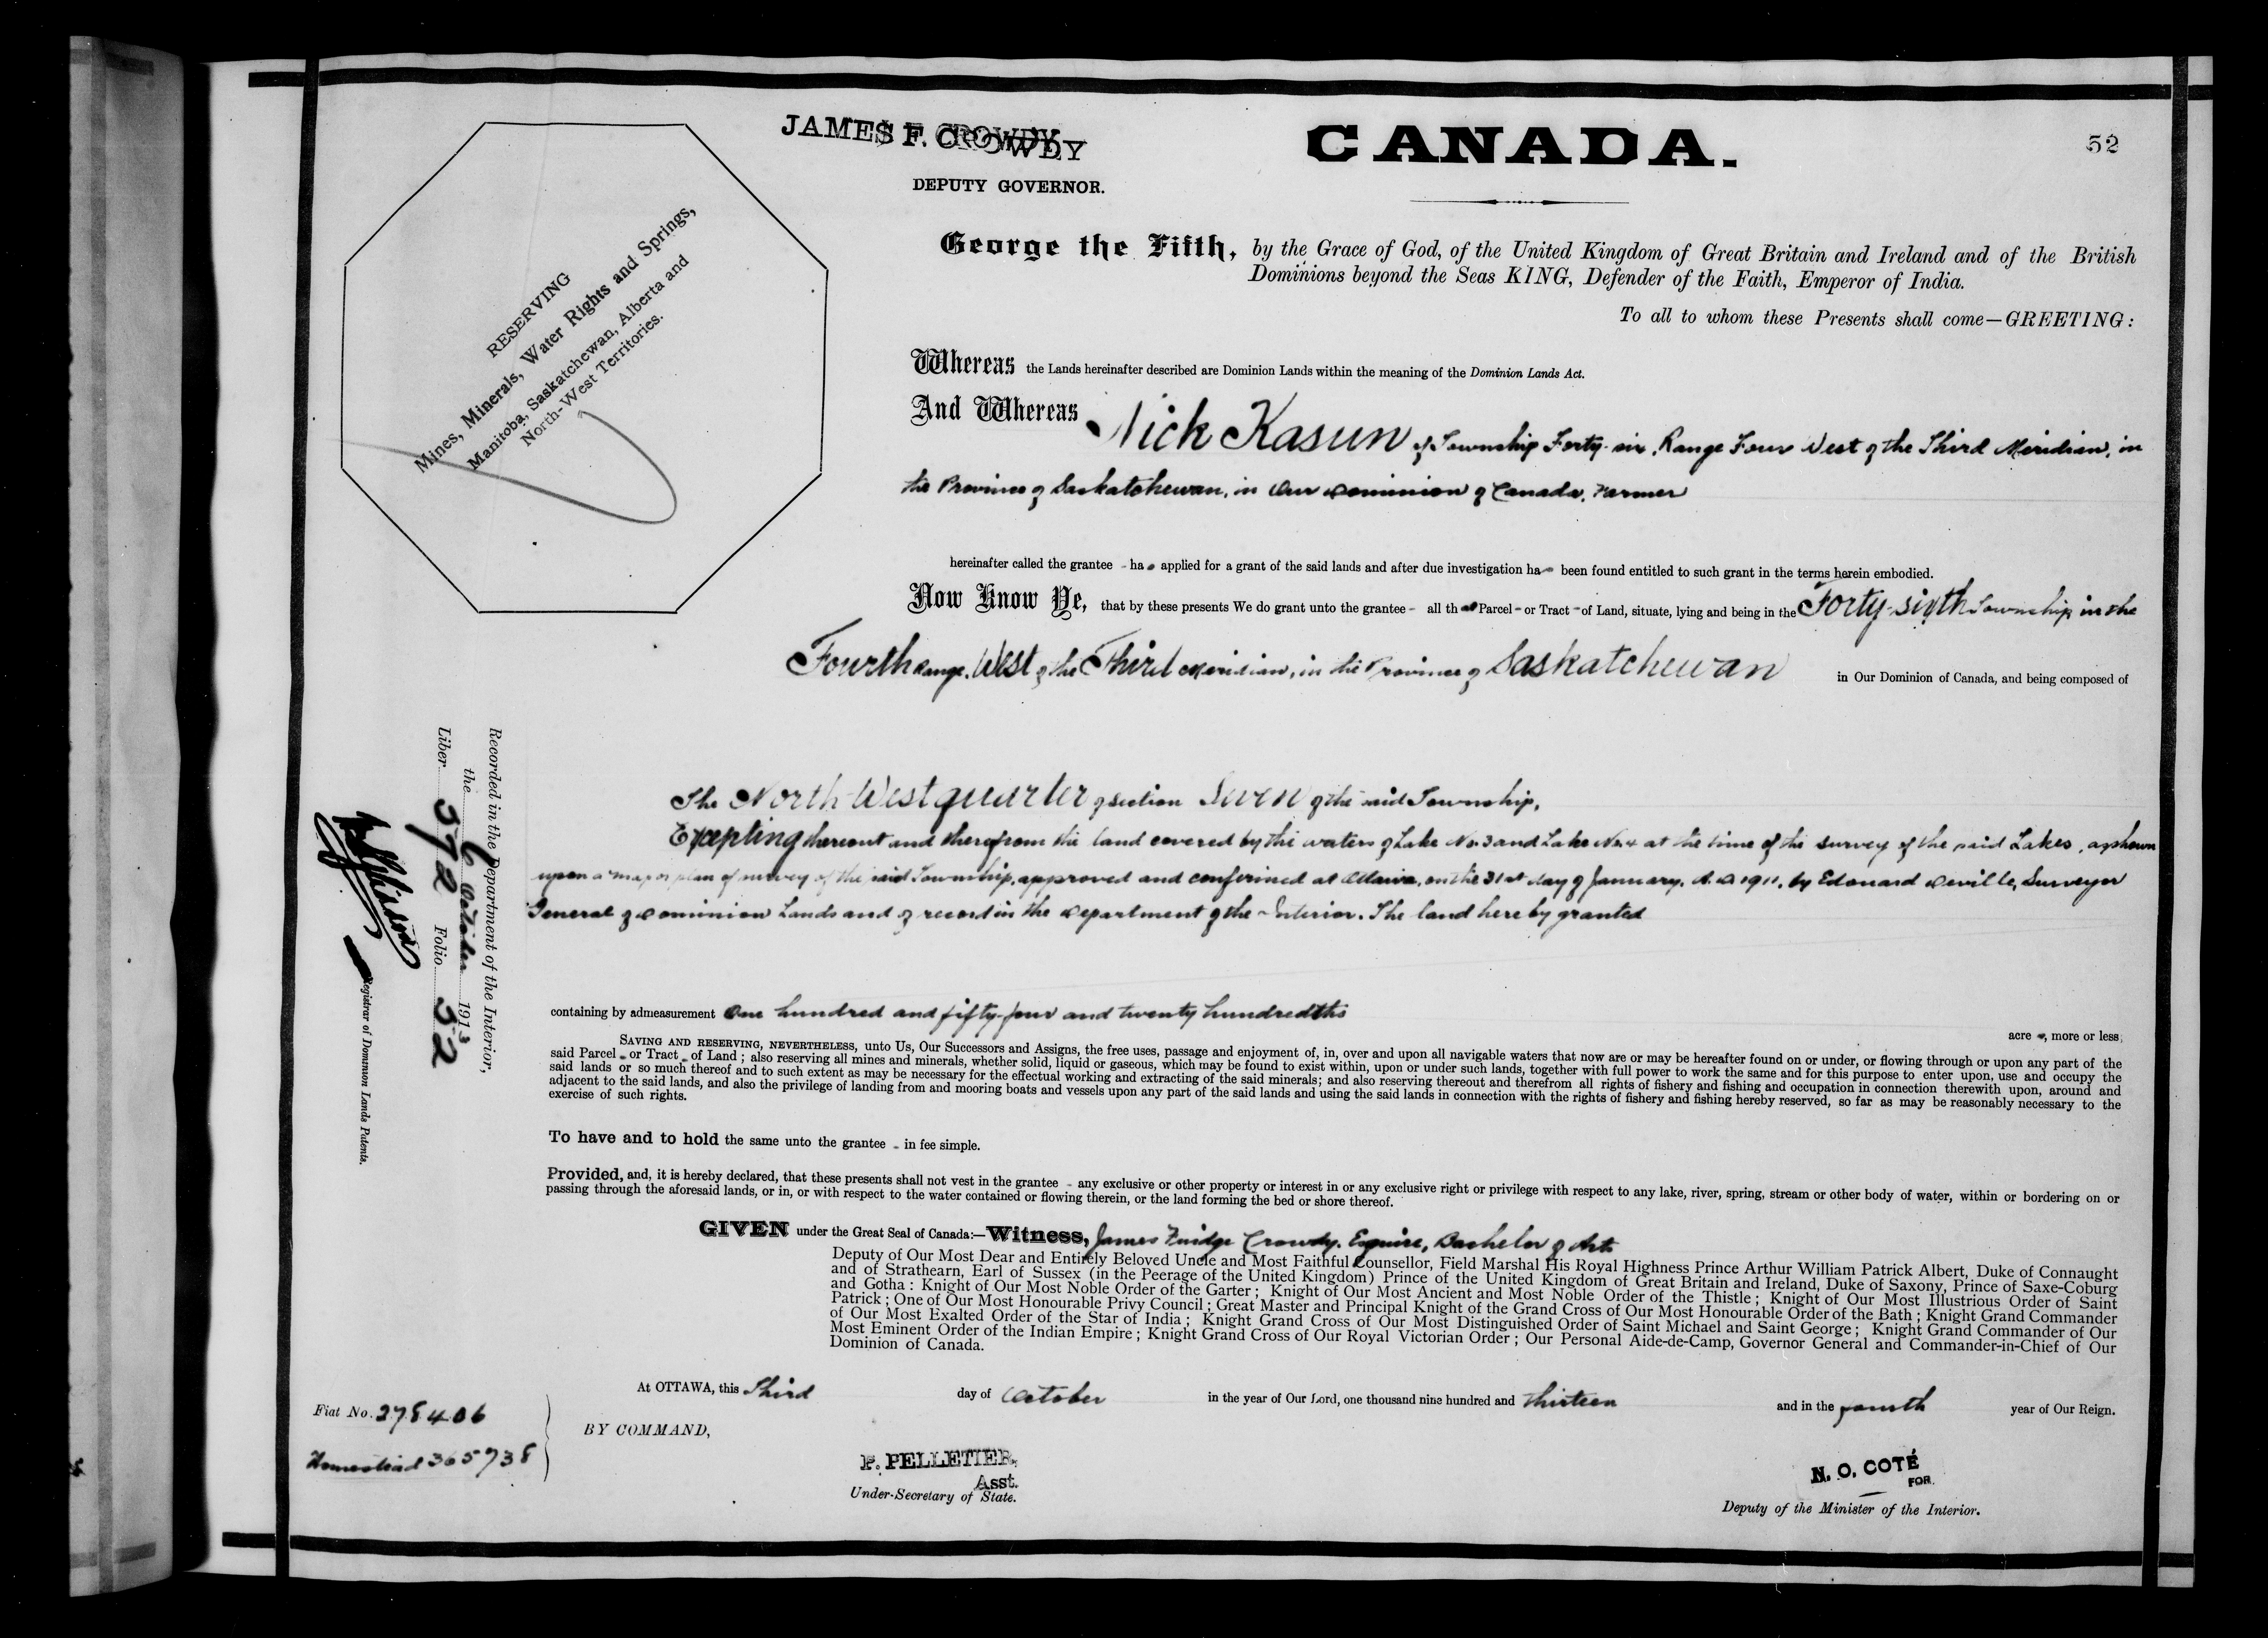 52
JAMES F. CROWDY
DEPUTY GOVERNOR.
CANADA.
RESERVING
Mines, Minerals, Water Rights and Springs,
Manitoba, Saskatchewan, Alberta and
North-West Territories.
George the Fifth, by the Grace of God, of the United Kingdom of Great Britain and Ireland and of the British
Dominions beyond the Seas KING, Defender of the Faith, Emperor of India.
To all to whom these Presents shall come—GREETING:
Whereas the Lands hereinafter described are Dominion Lands within the meaning of the Dominion Lands Act.
And Whereas Nick Kasun of Township Forty-six, Range Four West of the Third Meridian, in
the Province of Saskatchewan, in Our Dominion of Canada, Farmer
hereinafter called the grantee - has applied for a grant of the said lands and after due investigation has been found entitled to such grant in the terms herein embodied.
Now Know Ye, that by these presents We do grant unto the grantee - all that Parcel - or Tract - of Land, situate, lying and being in the Forty-sixth Township in the
Fourth Range, West of the Third Meridian, in the Province of Saskatchewan in Our Dominion of Canada, and being composed of
The North West quarter of Section Seven of the said Township,
Excepting thereout and therefrom the land covered by the waters of Lake No. 3 and Lake No. 4 at the time of the survey of the said Lakes, as shown
upon a map or plan of survey of the said Township, approved and confirmed at Ottawa, on the 31st day of January, A.D. 1911, by Edouard Deville, Surveyor
General of Dominion Lands and of record in the Department of the Interior. The land hereby granted
containing by admeasurement One hundred and fifty-four and twenty hundredths
acres, more or less;
SAVING AND RESERVING, NEVERTHELESS, unto Us, Our Successors and Assigns, the free uses, passage and enjoyment of, in, over and upon all navigable waters that now are or may be hereafter found on or under, or flowing through or upon any part of the
said Parcel - or Tract - of Land; also reserving all mines and minerals, whether solid, liquid or gaseous, which may be found to exist within, upon or under such lands, together with full power to work the same and for this purpose to enter upon, use and occupy the
said lands or so much thereof and to such extent as may be necessary for the effectual working and extracting of the said minerals; and also reserving thereout and therefrom all rights of fishery and fishing and occupation in connection therewith upon, around and
adjacent to the said lands, and also the privilege of landing from and mooring boats and vessels upon any part of the said lands and using the said lands in connection with the rights of fishery and fishing hereby reserved, so far as may be reasonably necessary to the
exercise of such rights.
To have and to hold the same unto the grantee - in fee simple.
Provided, and, it is hereby declared, that these presents shall not vest in the grantee - any exclusive or other property or interest in or any exclusive right or privilege with respect to any lake, river, spring, stream or other body of water, within or bordering on or
passing through the aforesaid lands, or in, or with respect to the water contained or flowing therein, or the land forming the bed or shore thereof.
GIVEN under the Great Seal of Canada:—Witness, James Fuidge Crowdy, Esquire, Bachelor of Arts
Deputy of Our Most Dear and Entirely Beloved Uncle and Most Faithful Counsellor, Field Marshal His Royal Highness Prince Arthur William Patrick Albert, Duke of Connaught
and of Strathearn, Earl of Sussex (in the Peerage of the United Kingdom) Prince of the United Kingdom of Great Britain and Ireland, Duke of Saxony, Prince of Saxe-Coburg
and Gotha: Knight of Our Most Noble Order of the Garter; Knight of Our Most Ancient and Most Noble Order of the Thistle; Knight of Our Most Illustrious Order of Saint
Patrick; One of Our Most Honourable Privy Council; Great Master and Principal Knight of the Grand Cross of Our Most Honourable Order of the Bath; Knight Grand Commander
of Our Most Exalted Order of the Star of India; Knight Grand Cross of Our Most Distinguished Order of Saint Michael and Saint George; Knight Grand Commander of Our
Most Eminent Order of the Indian Empire; Knight Grand Cross of Our Royal Victorian Order; Our Personal Aide-de-Camp, Governor General and Commander-in-Chief of Our
Dominion of Canada.
At OTTAWA, this Third day of October in the year of Our Lord, one thousand nine hundred and thirteen and in the fourth year of Our Reign.
BY COMMAND,
P. PELLETIER,
Asst.
Under-Secretary of State.
N. O. COTÉ
FOR
Deputy of the Minister of the Interior.
Fiat No. 278406
Homestead 365738
Recorded in the Department of the Interior,
the 6 October 1913
Liber 572 Folio 52
Registrar of Dominion Lands Patents.